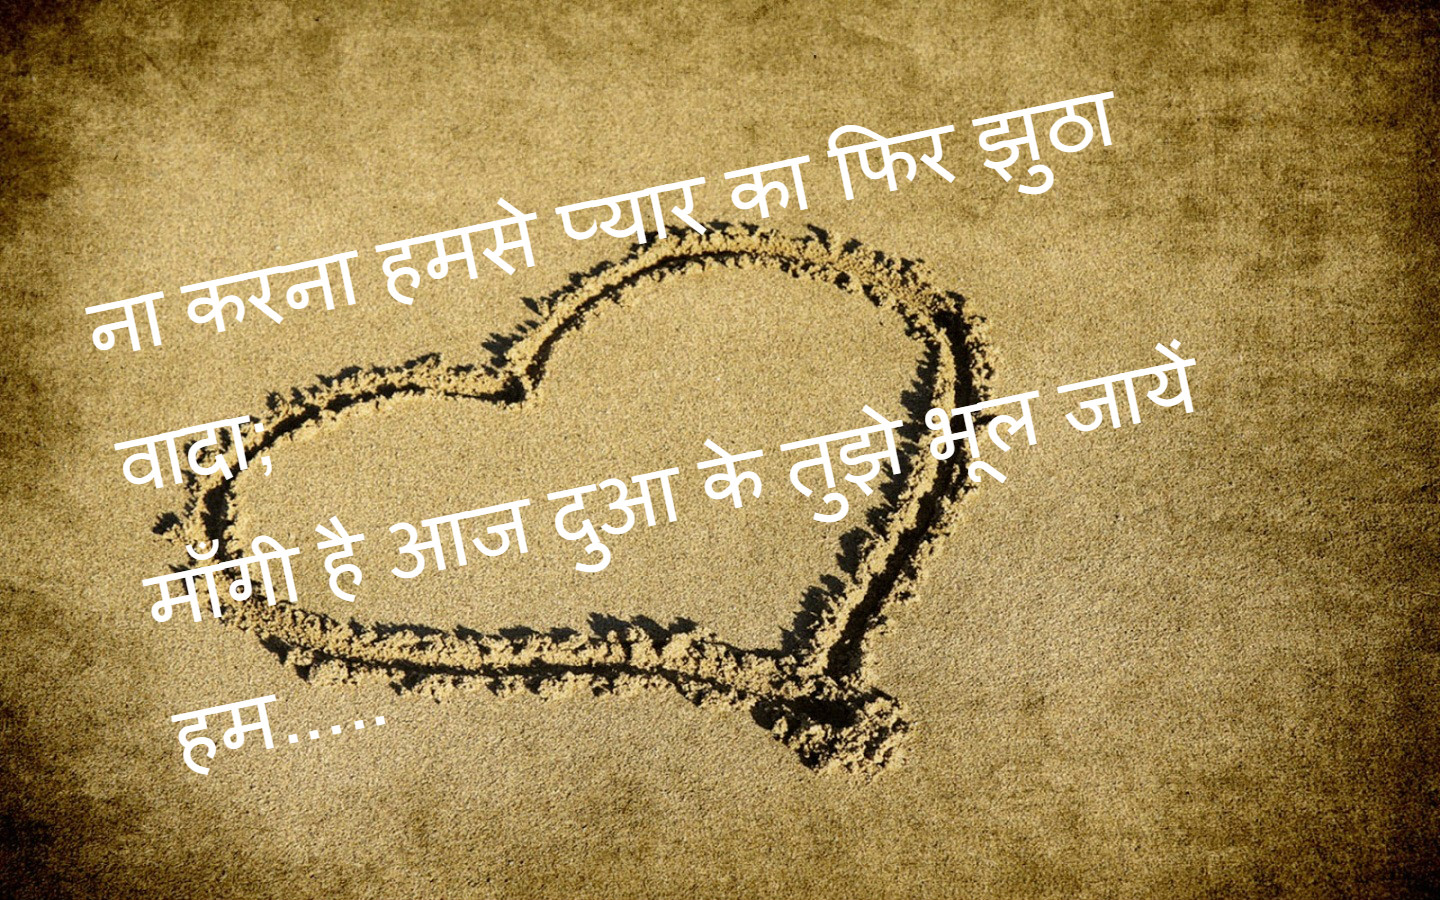 ना करना हमसे प्यार का फिर झुठा
वादा;
माँगी है आज दुआ के तुझे भूल जायें
हम.....